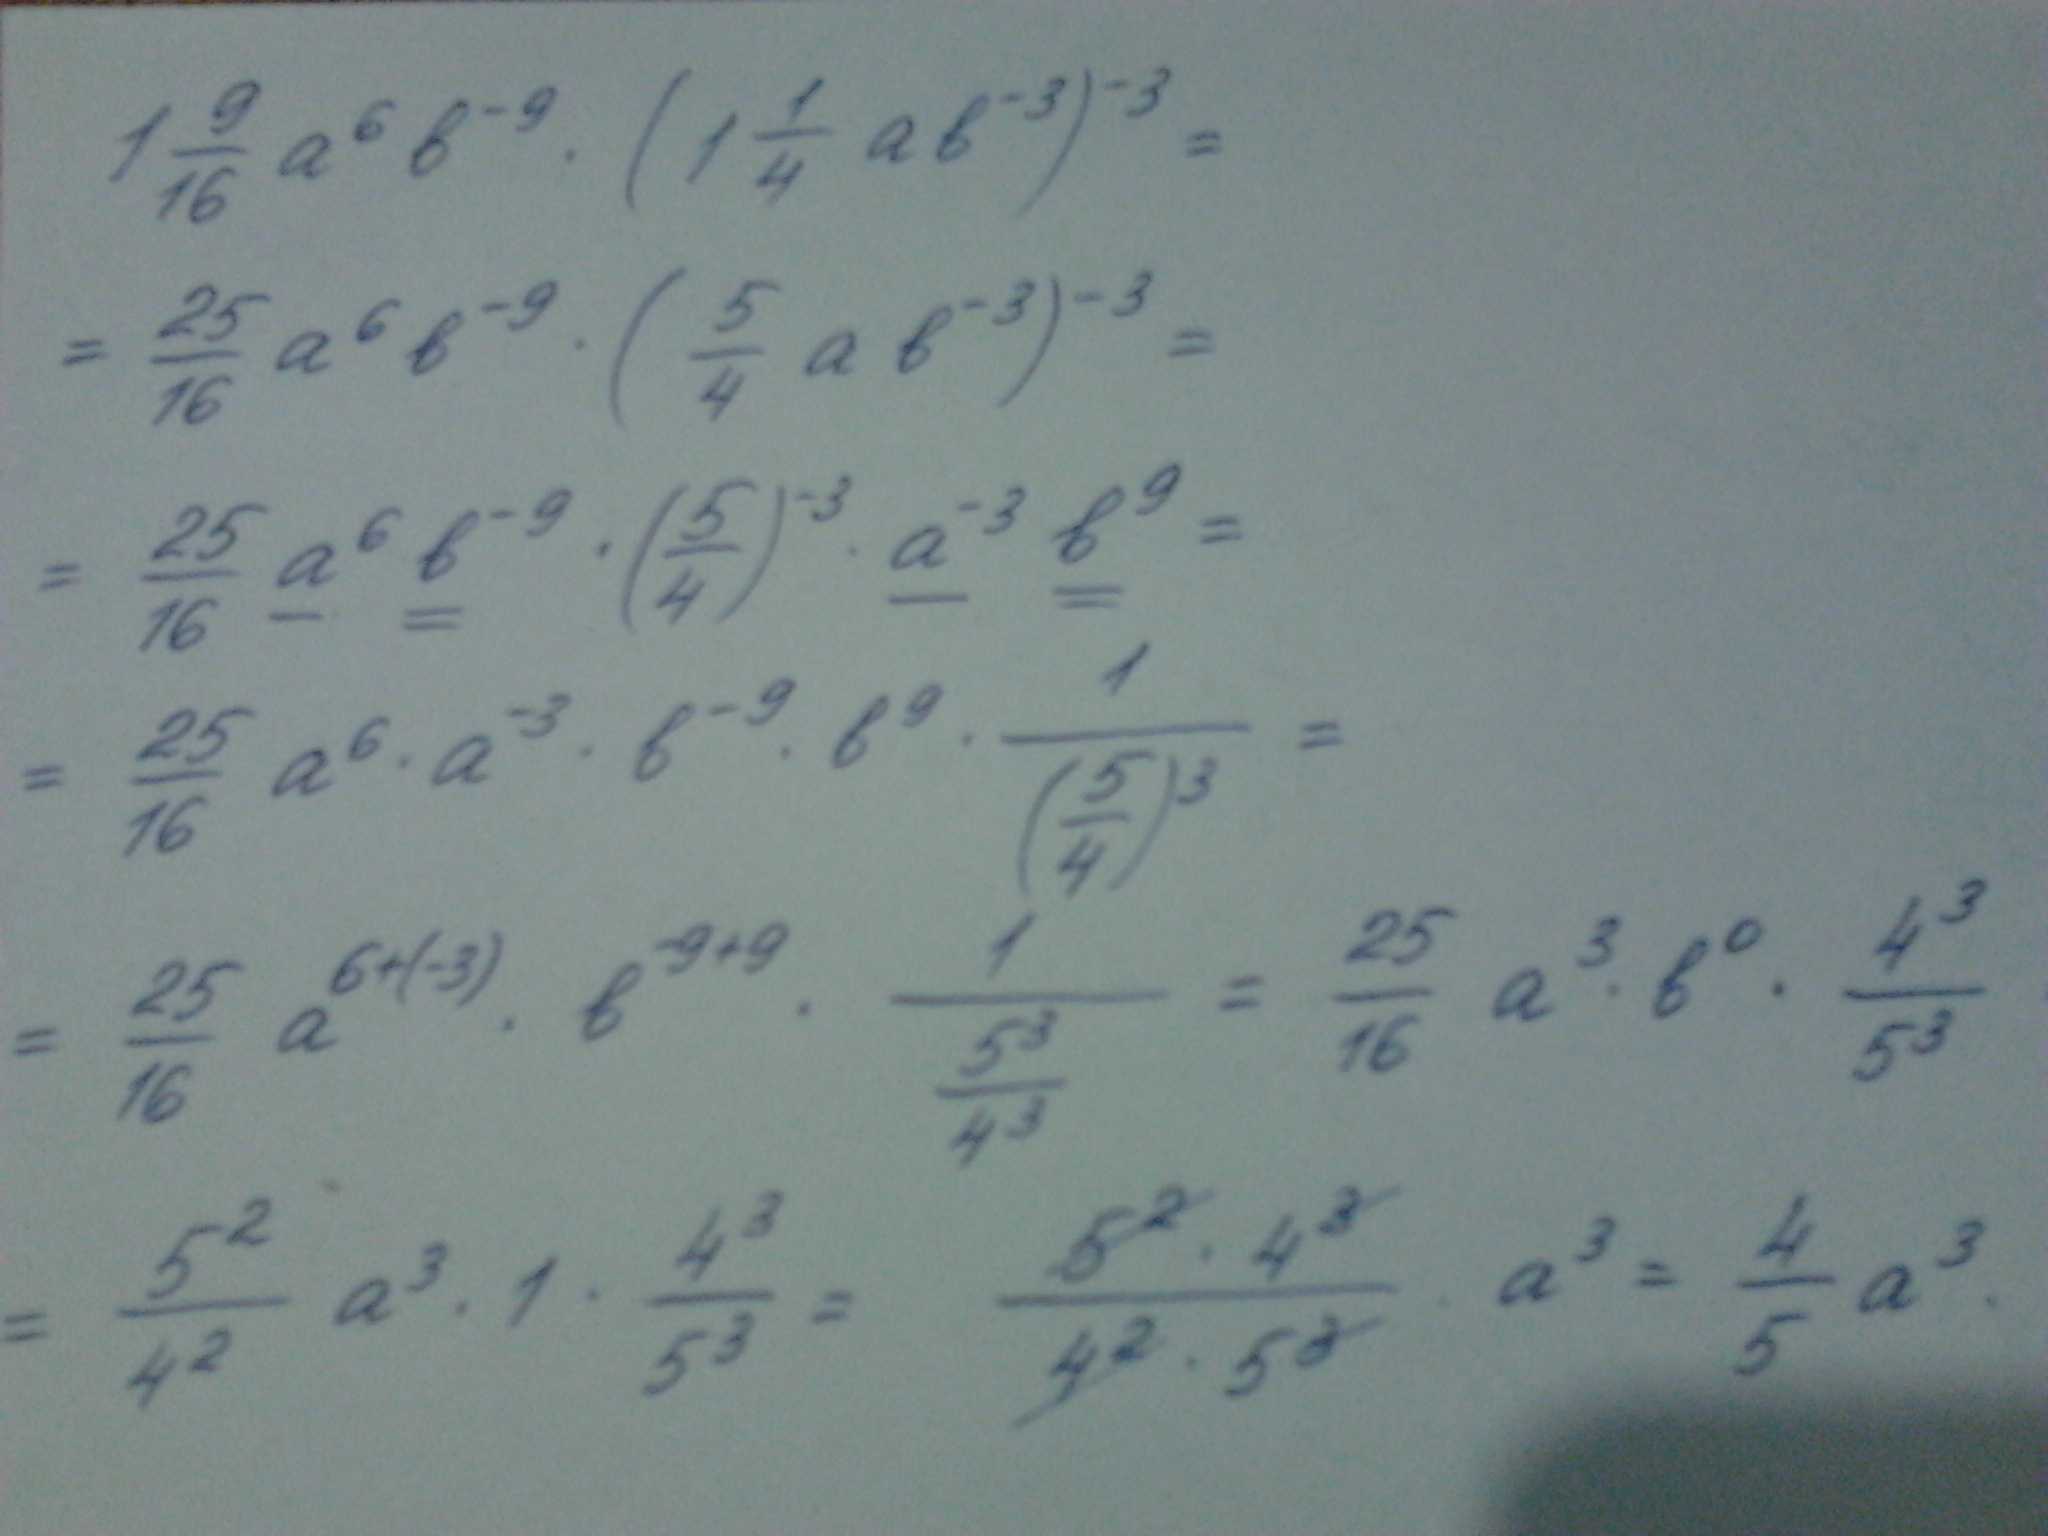 1 9/16 a⁶ в⁻⁹ · (1 1/4 a в⁻³)⁻³ =
= 25/16 a⁶ в⁻⁹ · (5/4 a в⁻³)⁻³ =
= 25/16 a⁶ в⁻⁹ · (5/4)⁻³ · a⁻³ в⁹ =
= 25/16 a⁶ · a⁻³ · в⁻⁹ · в⁹ · 1/(5/4)³ =
= 25/16 a⁶⁺⁽⁻³⁾ · в⁻⁹⁺⁹ · 1/(5³/4³) = 25/16 a³ · в⁰ · 4³/5³
= 5²/4² a³ · 1 · 4³/5³ = 5² · 4³/4² · 5³ · a³ = 4/5 a³.